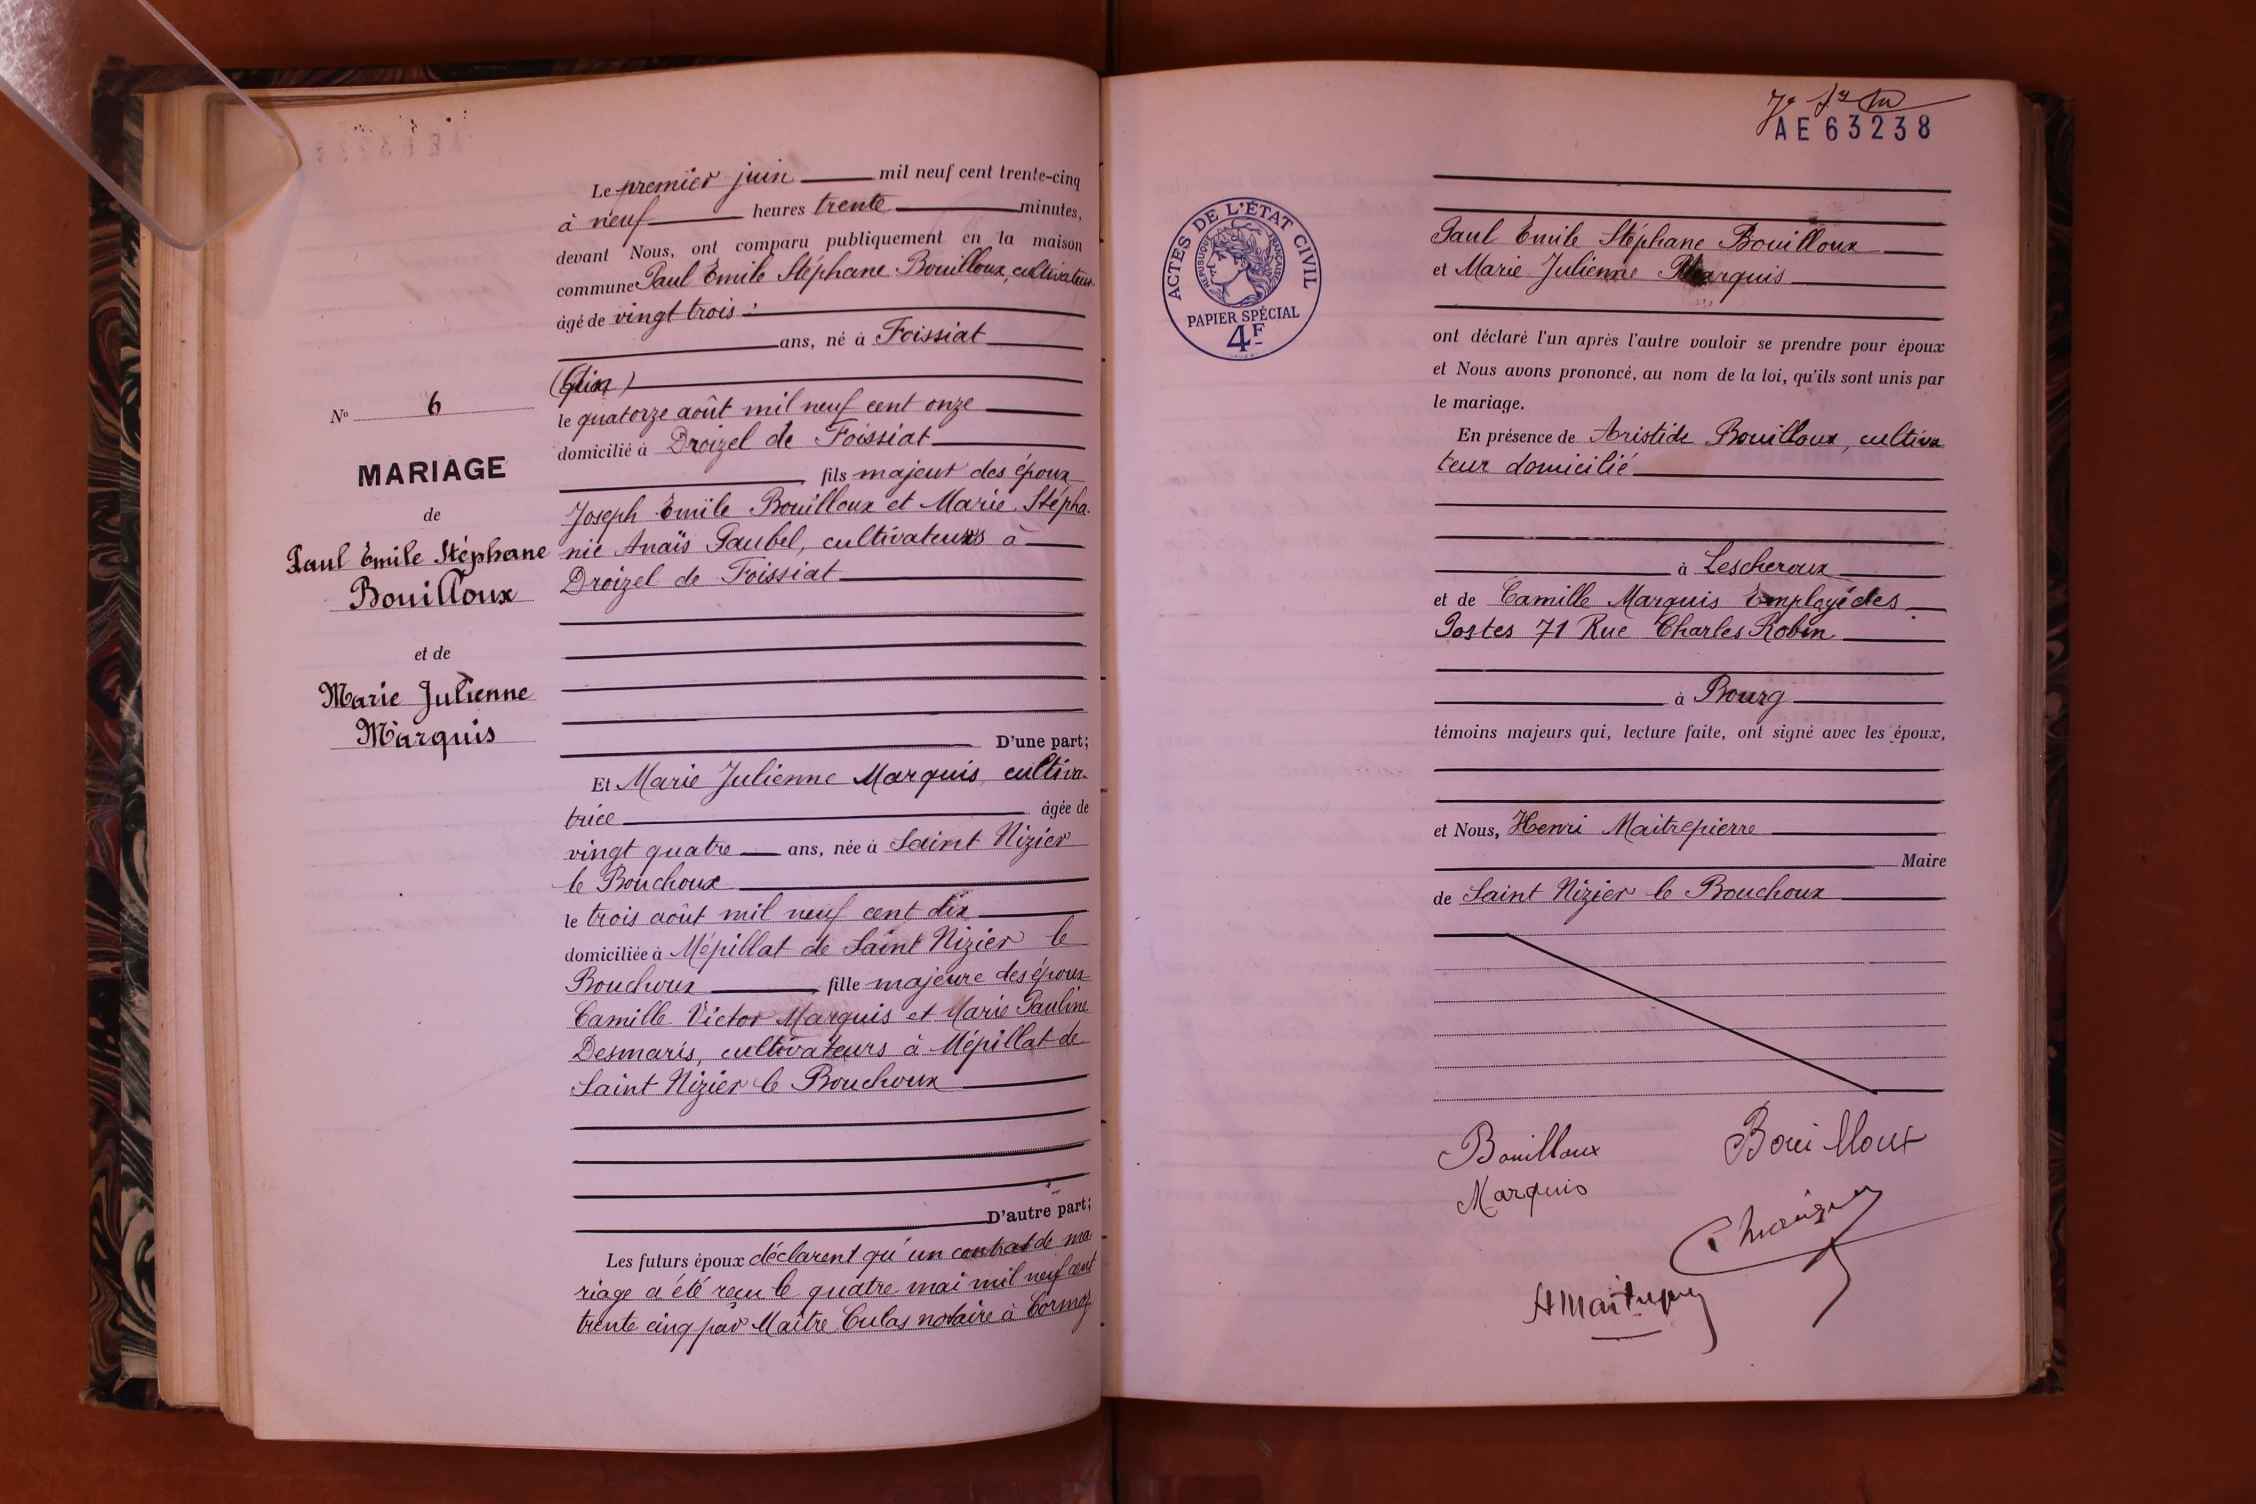 Le premier juin mil neuf cent trente-cinq
à neuf heures trente minutes,
devant Nous, ont comparu publiquement en la maison
commune Paul Emile Stéphane Bouilloux, cultivateur
âgé de vingt trois
ans, né à Foissiat
(Ain)
le quatorze août mil neuf cent onze
domicilié à Droizel de Foissiat
fils majeur des époux
Joseph Emile Bouilloux et Marie Stépha-
nie Anaïs Paubel, cultivateurs à
Droizel de Foissiat
D'une part;
Et Marie Julienne Marquis, cultiva-
trice âgée de
vingt quatre ans, née à Saint Nizier
le Bouchoux
le trois août mil neuf cent dix
domiciliée à Mépillat de Saint Nizier le
Bouchoux fille majeure des époux
Camille Victor Marquis et Marie Pauline
Desmaris, cultivateurs à Mépillat de
Saint Nizier le Bouchoux
D'autre part;
Les futurs époux déclarent qu'un contrat de ma
riage a été reçu le quatre mai mil neuf cent
trente cinq par Maître Culas notaire à Cormoz
No 6
MARIAGE
de
Paul Emile Stéphane
Bouilloux
et de
Marie Julienne
Marquis
AE 63238
ACTES DE L'ÉTAT CIVIL
RÉPUBLIQUE FRANÇAISE
PAPIER SPÉCIAL
4F
Paul Emile Stéphane Bouilloux
et Marie Julienne Marquis
ont déclaré l'un après l'autre vouloir se prendre pour époux
et Nous avons prononcé, au nom de la loi, qu'ils sont unis par
le mariage.
En présence de Aristide Bouilloux, cultiva
teur domicilié
à Lescheroux
et de Camille Marquis Employé des
Postes 71 Rue Charles Robin
à Bourg
témoins majeurs qui, lecture faite, ont signé avec les époux,
et Nous, Henri Maitrepierre
Maire
de Saint Nizier le Bouchoux
Bouilloux Bouilloux
Marquis
HMaitrepierre